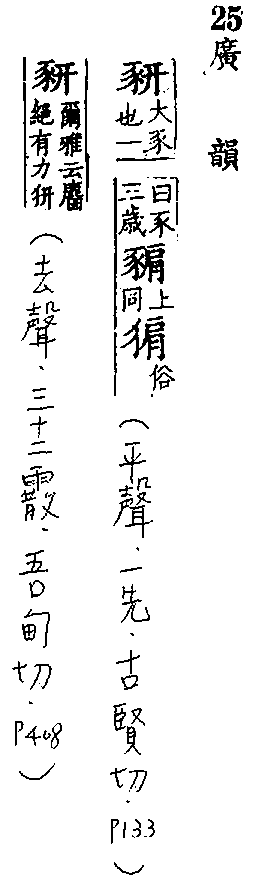 25 廣韻
豜大豕也一曰豕三歲𧱚上同猏俗(平聲.一先.古賢切.P133)
豜爾雅云麕絕有力豜(去聲.三十二霰.吾甸切.P408)